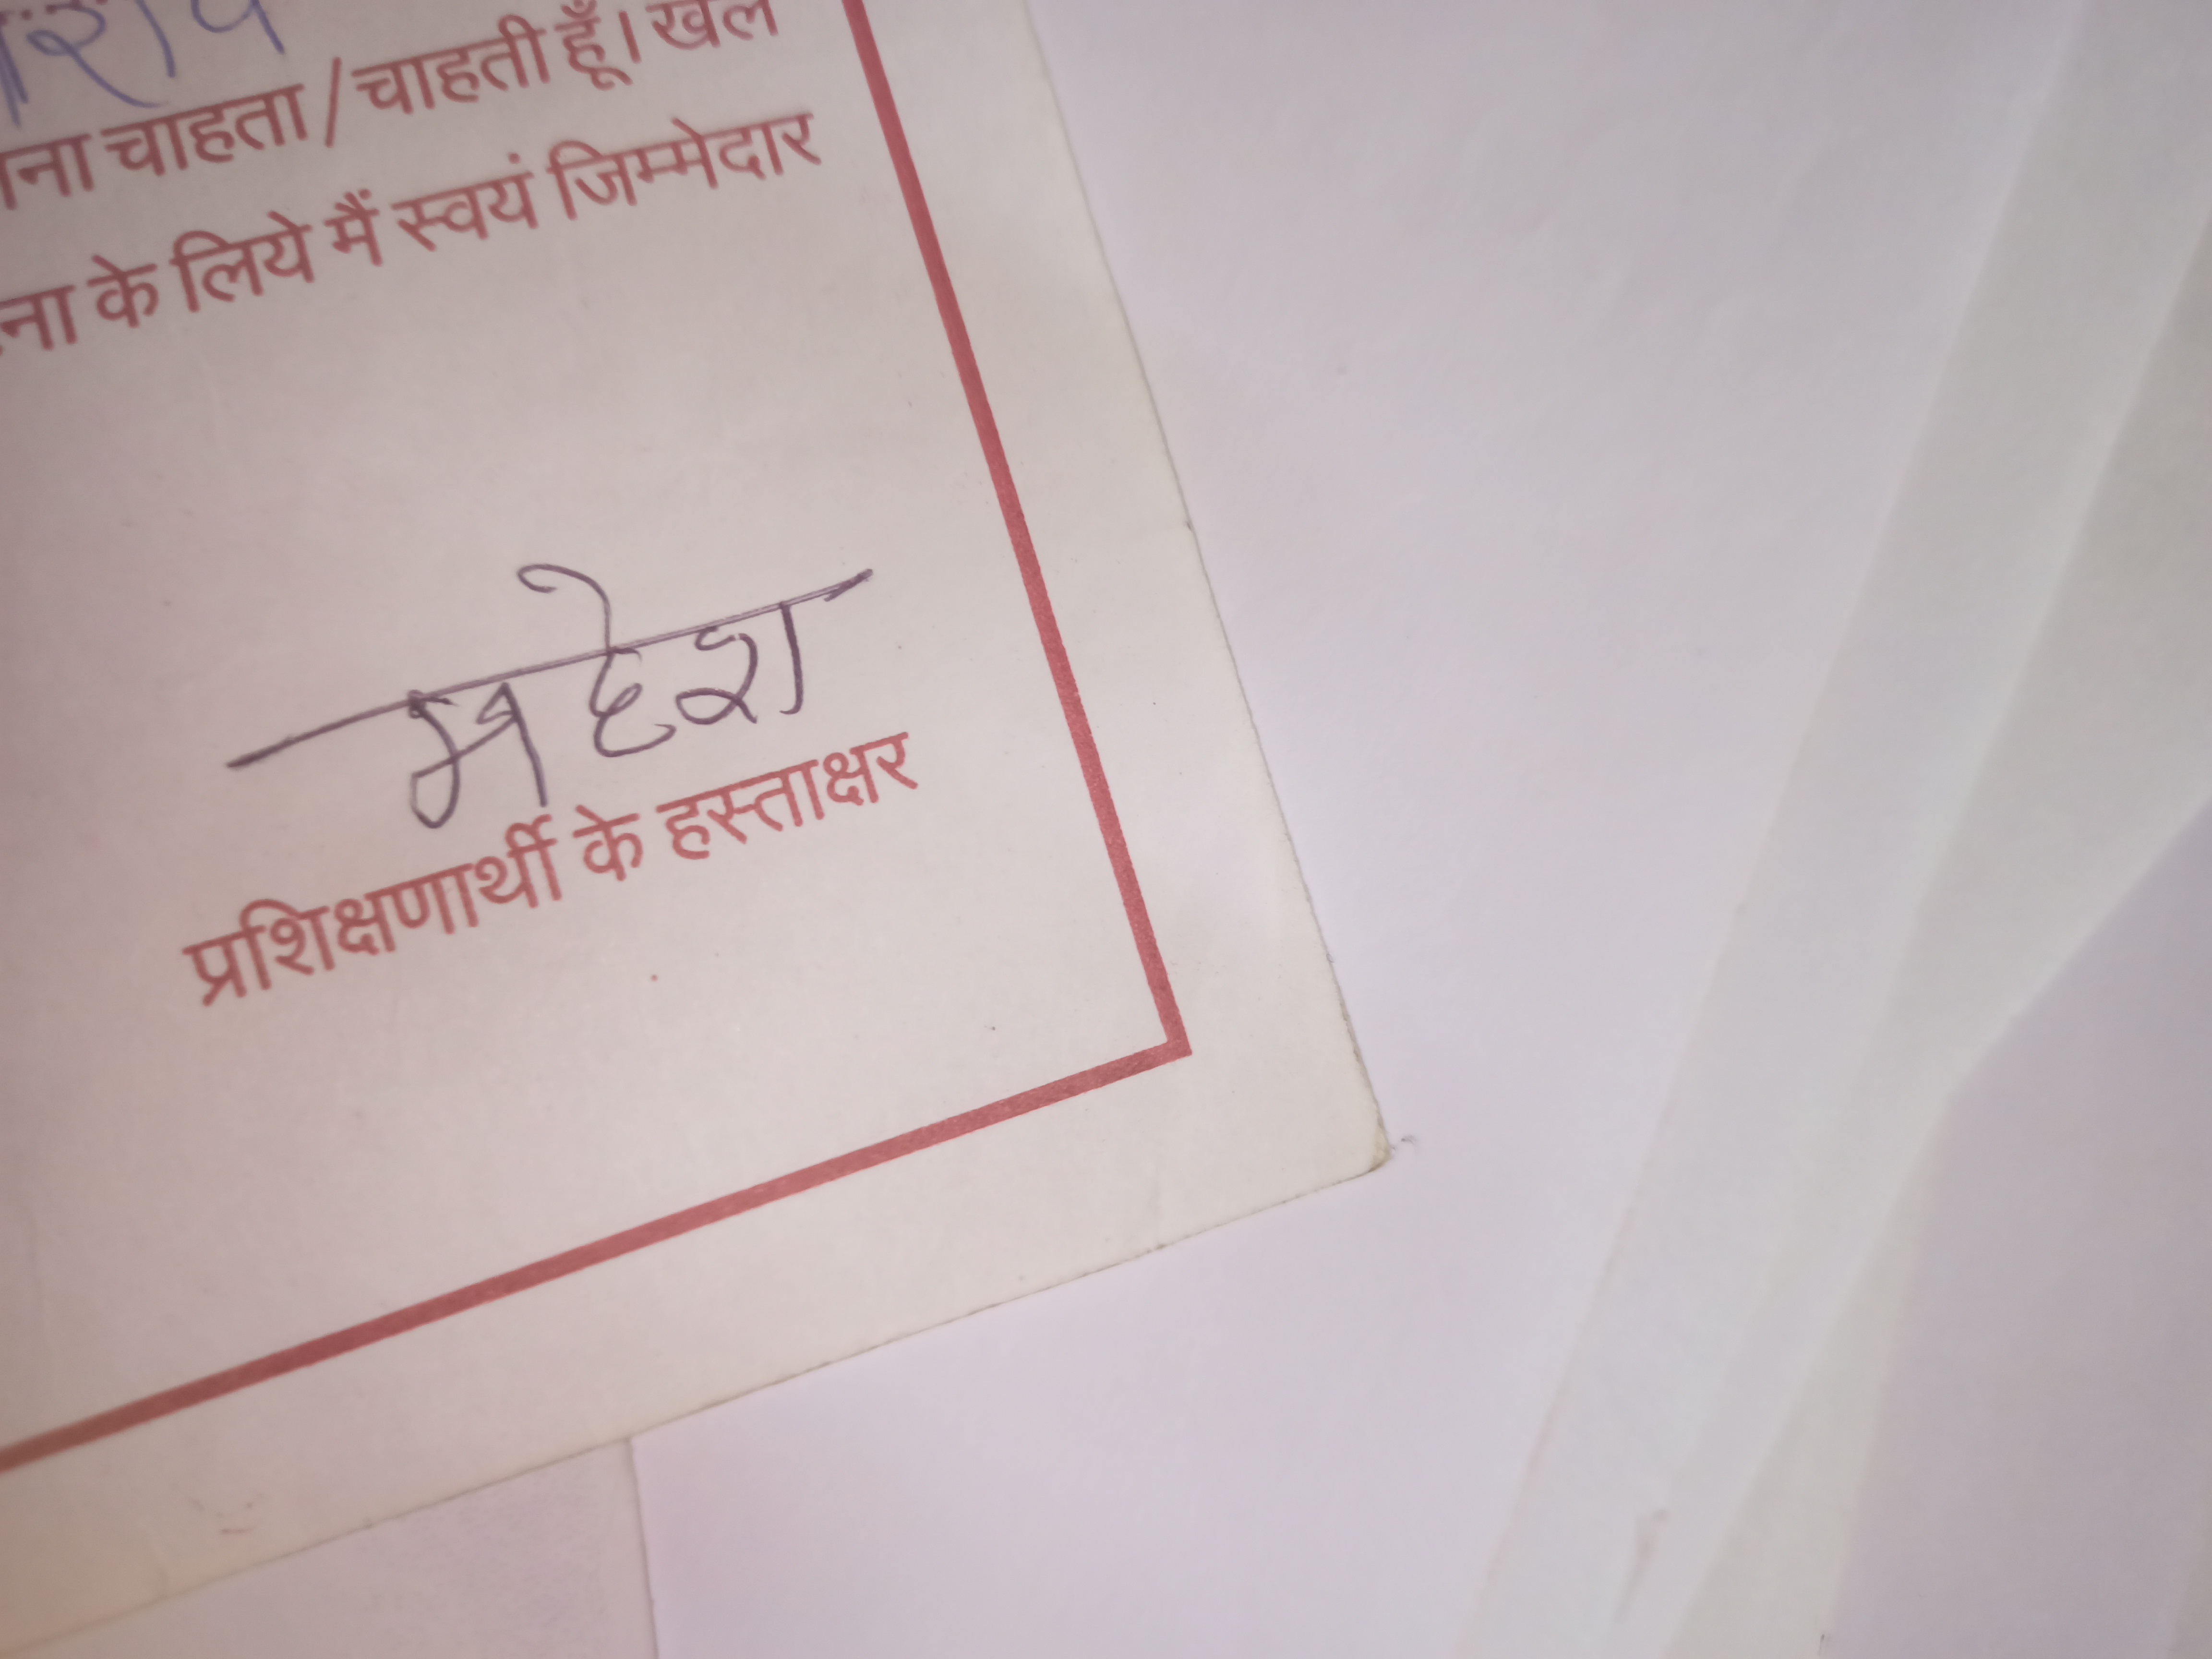 चाहता / चाहती हूँ। खेल
के लिये मैं स्वयं जिम्मेदार
महेश
प्रशिक्षणार्थी के हस्ताक्षर